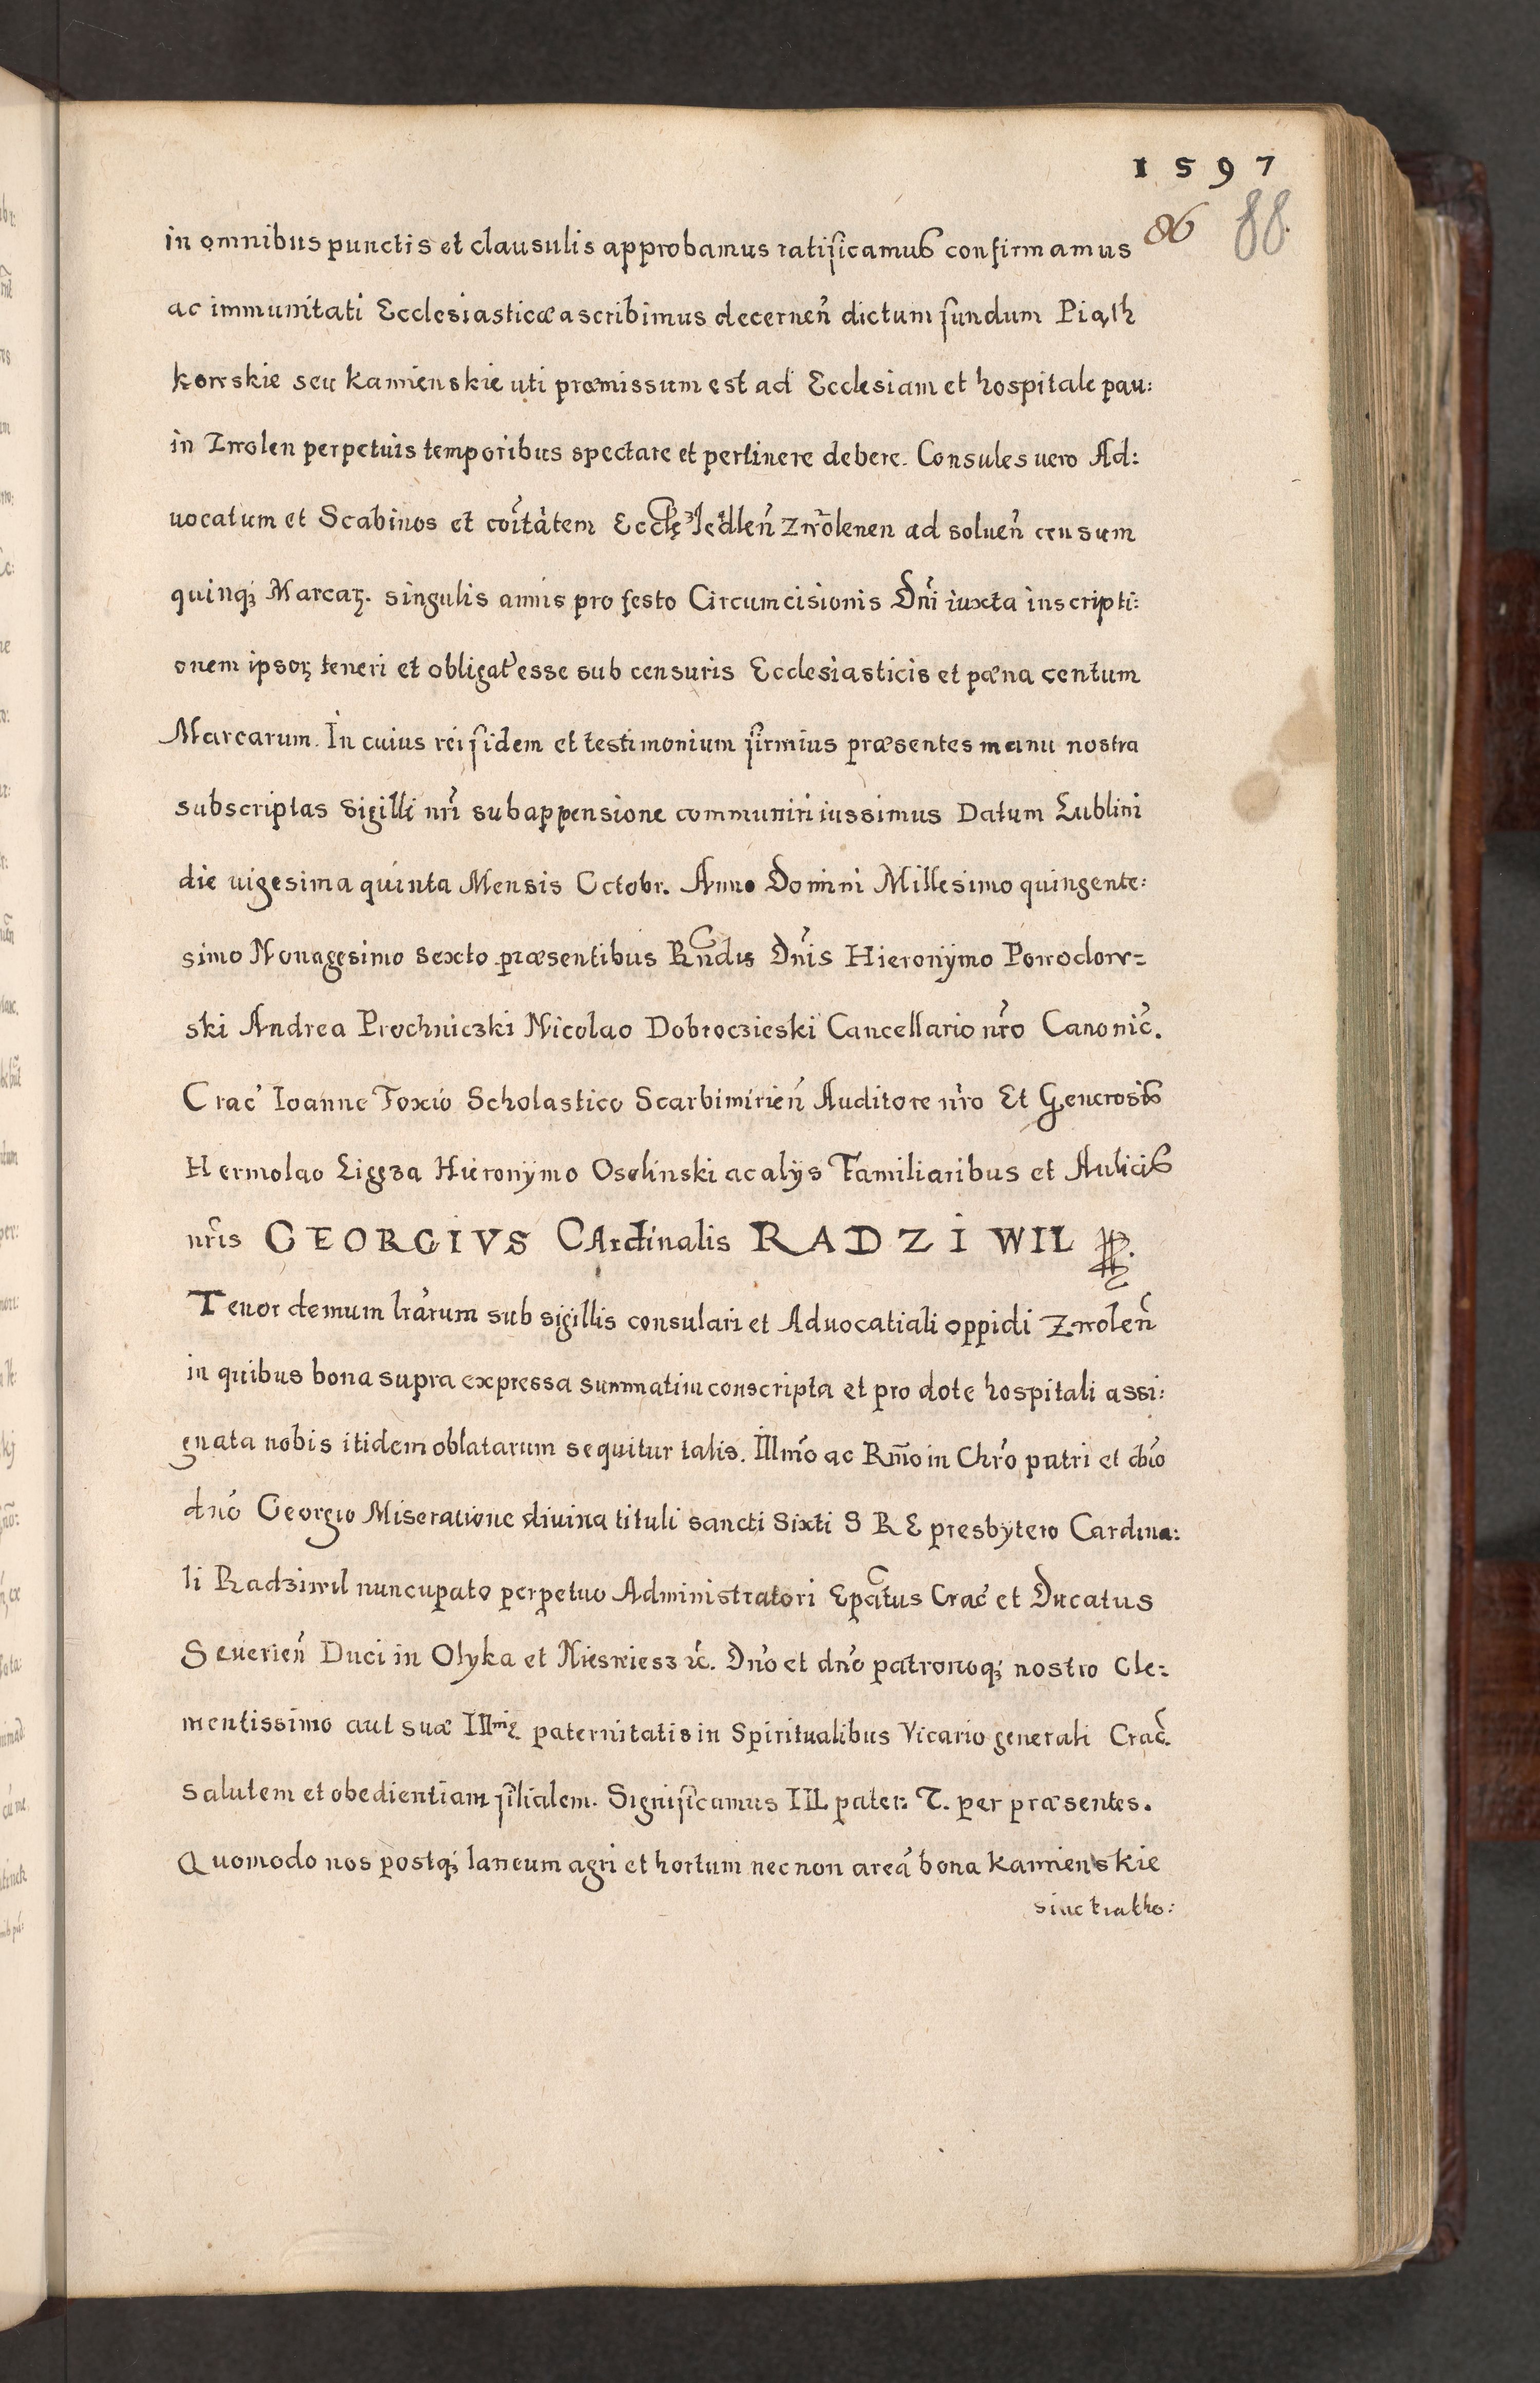 1597
86 88.
in omnibus punctis et clausulis approbamus ratificamus confirmamus
ac immunitati Ecclesiasticæ ascribimus decerneñ dictum fundum Piąth
kowskie seu kamienskie uti præmissum est ad Ecclesiam et hospitale pau:
in Zwolen perpetuis temporibus spectare et pertinere debere. Consules vero Ad:
uocatum et Scabinos et coĩtãtem Zwõlenen ad solueñ censum
quinqꝫ Marcaꝝ. singulis annis pro festo Circumcisionis Dñi iuxta inscripti:
onem ipsoꝝ teneri et obligat' esse sub censuris Ecclesiasticis et pæna centum
Marcarum. In cuius rei fidem et testimonium firmius præsentes manu nostra
subscriptas sigilli nr̃i subappensione communiri iussimus Datum Lublini
die uigesima quinta Mensis Octobr. Anno Domini Millesimo quingente:
simo Nonagesimo sexto præsentibus Rñdis Dñis Hieronÿmo Powodow=
ski Andrea Prochniczki Nicolao Dobroczieski Cancellario nr̃o Canonic̃.
Crac̃ Ioanne Foxio Scholastico Scarbimirieñ Auditore nr̃o Et Generosis
Hermolao Ligęza Hieronÿmo Oselinski ac alÿs Familiaribus et Aulicis
nr̃is GEORGIVS CArdinalis RADZIWIL
Tenor demum lrãrum sub sigillis consulari et Aduocatiali oppidi Zwoleñ
in quibus bona supra expressa summatim conscripta et pro dote hospitali assi:
gnata nobis itidem oblatarum sequitur talis. Illmõ ac Rm̃o in Chrõ patri et dño
dnõ Georgio Miseratione diuina tituli sancti Sixti S R E presbÿtero Cardina:
li Radziwil nuncupato perpetuo Administratori Epãtus Crac̃ et Ducatus
Seuerieñ Duci in Olyka et Nieswiesz ꝛc̃. Dnõ et dnõ patronoqꝫ nostro Cle:
mentissimo aut suæ Illmę paternitatis in Spiritualibus Vicario generali Crac̃.
salutem et obedientiam filialem. Significamus Ill. pater: T. per præsentes.
Quomodo nos postqꝫ laneum agri et hortum nec non areã bona kamienskie
siue